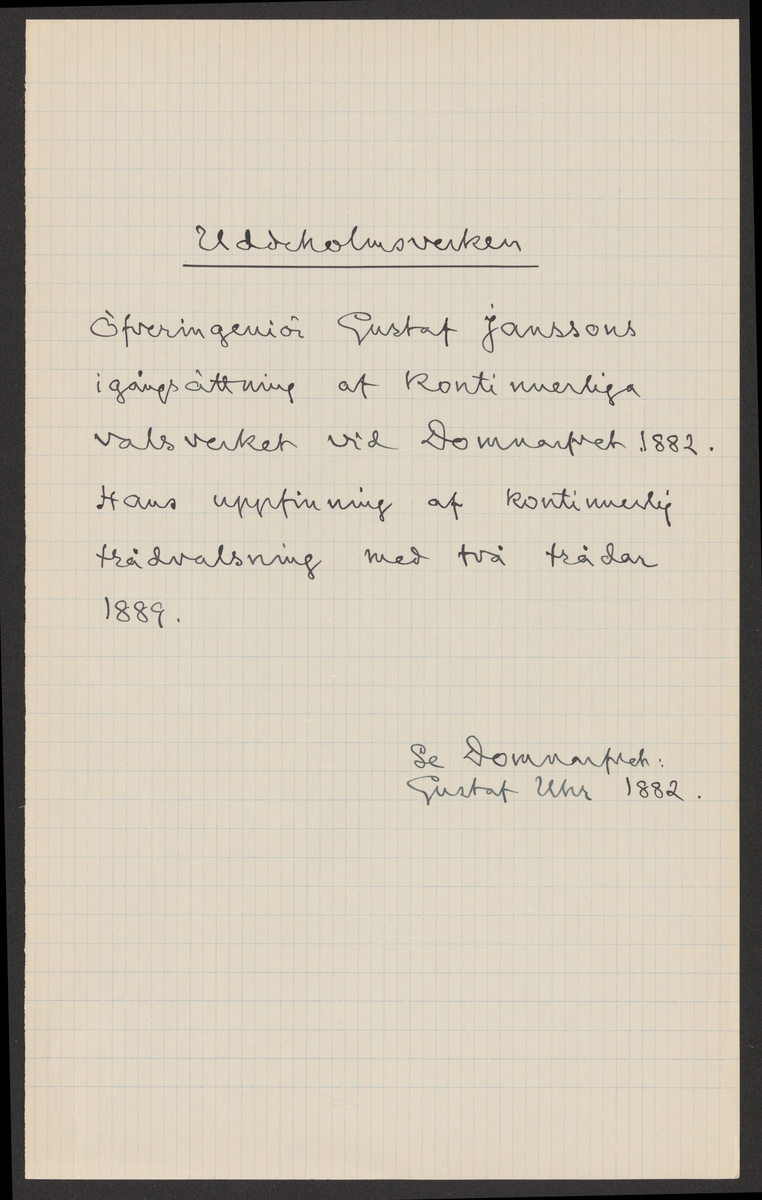 Uddeholmsverken
Öfveringeniör Gustaf Janssons
igångsättning af kontinuerliga
valsverket vid Domnarfvet 1882.
Hans uppfinning af kontinuerlig
trådvalsning med två trådar
1889.
Se Domnarfvet:
Gustaf Uhr 1882.